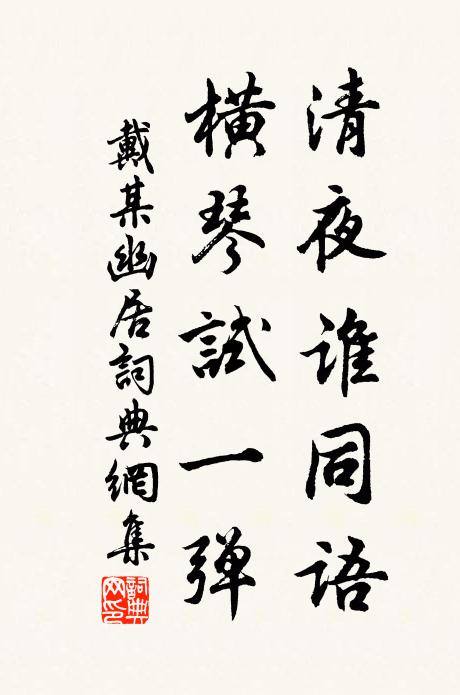 清夜誰同語
橫琴試一彈
戴某幽居詞典網集
詞典網印